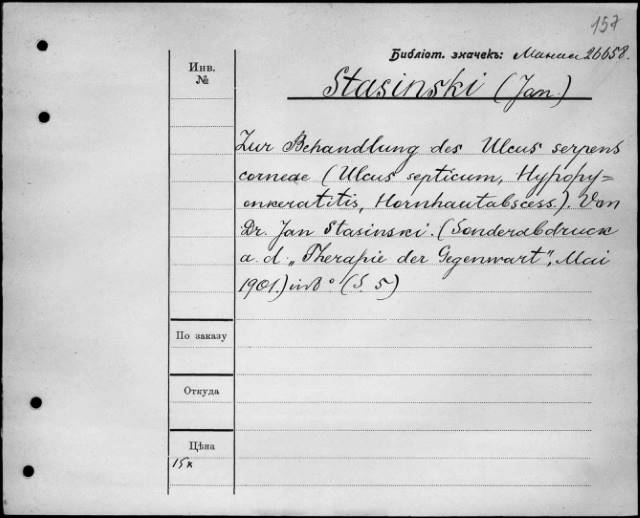 157
Библіот. значекъ: 26658.
Инв.
№
Stasinski (Jan.)
Zur Behandlung des Ulcus serpens
corneae (Ulcus septicum, Hypopy=
onkeratitis, Hornhautabscess.). Von
Dr. Jan Stasinski. (Sonderabdruck
a. d. „Therapie der Gegenwart", Mai
1901.) in 8° (S. 5)
По заказу
Откуда
Цѣна
15к